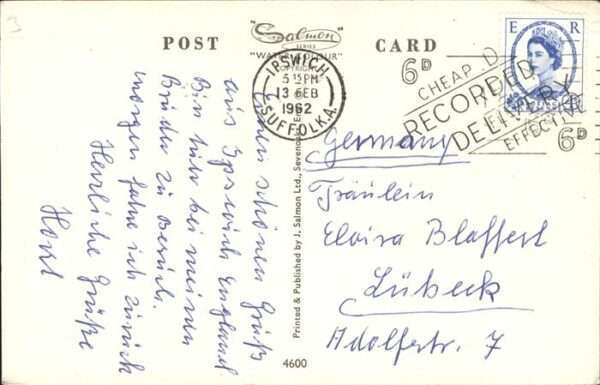 POST
"Salmon"
SERIES
"WATER COLOUR"
COPYRIGHT
CARD
IPSWICH
5 15 PM
13 FEB
1962
SUFFOLK.A.
6D
CHEAP
RECORDED
DELIVERY
EFFECTIVE
6D
E R
Einen schönen Gruß
aus Ipswich England.
Bin hier bei meinen
Bruder zu Besuch.
morgen fahre ich zurück
Herzliche Grüße
Horst
Printed & Published by J. Salmon Ltd., Sevenoaks, En
4600
Germany
Fräulein
Elvira Blaffert
Lübeck
Adolfstr. 7
3